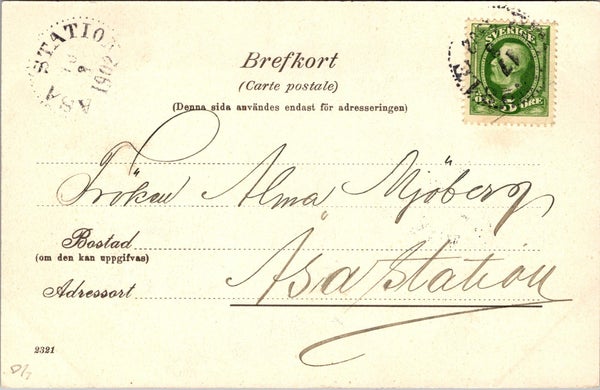 ÅSA STATION
1902
SVERIGE
5 ÖRE
Brefkort
(Carte postale)
(Denna sida användes endast för adresseringen)
Fröken Alma Mjöberg
Bostad
(om den kan uppgifvas)
Adressort
Åsa station
2321